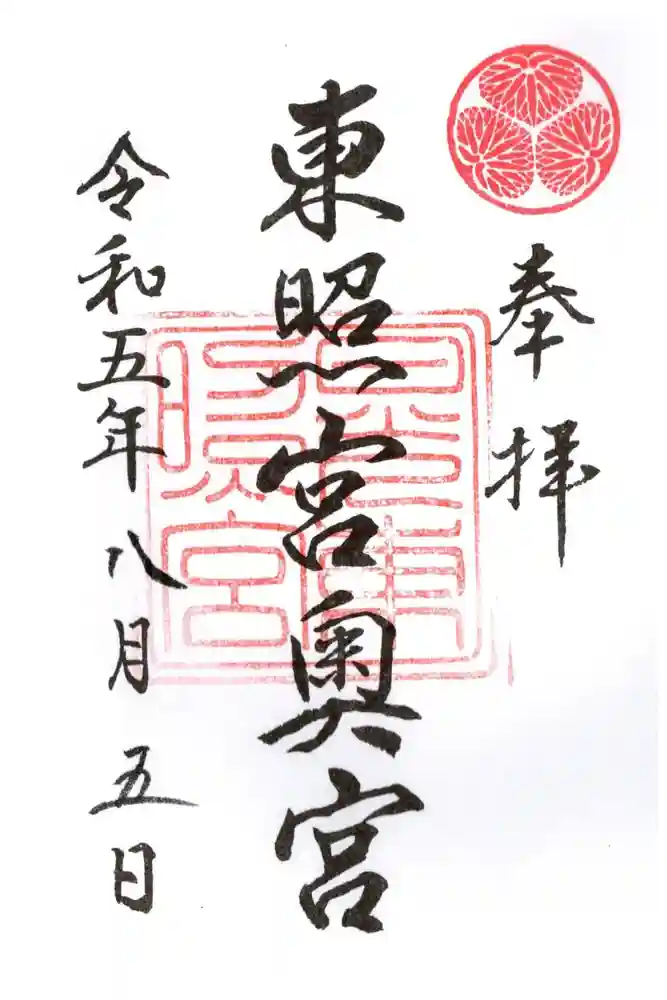 奉拝
東照宮奥宮
令和五年八月五日